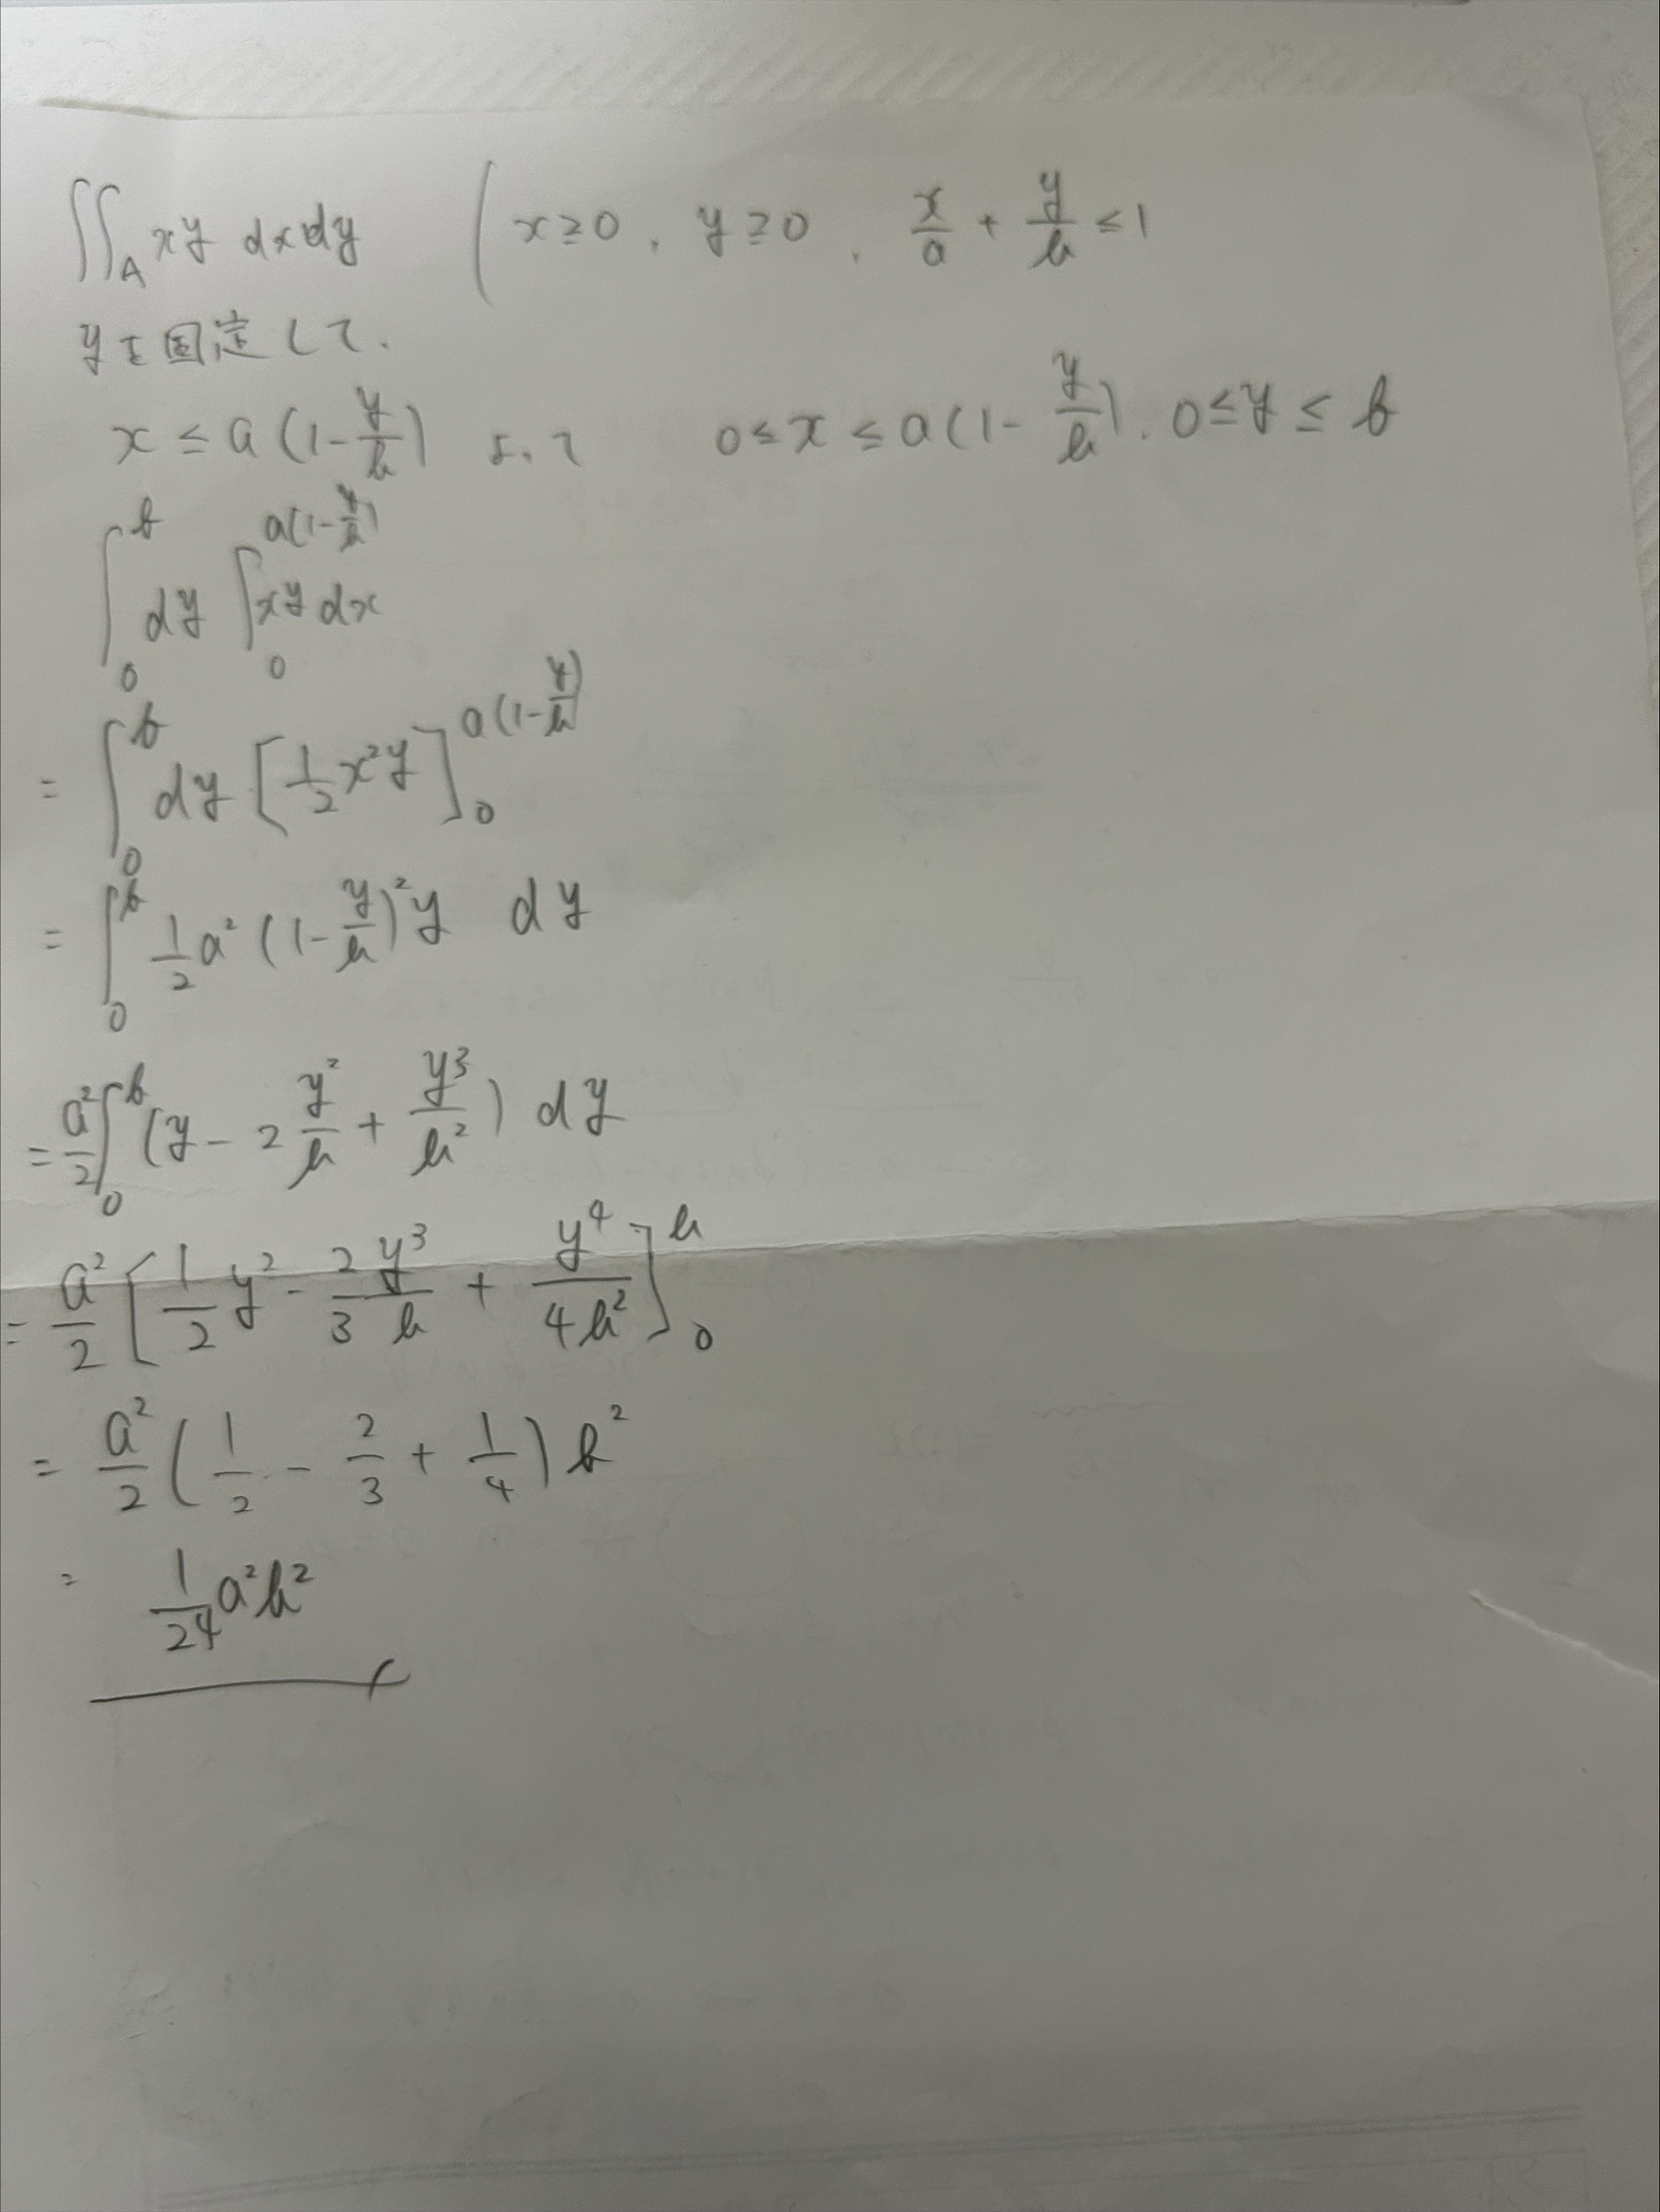 ∬_A xy dxdy ( x≥0, y≥0, x/a + y/b ≤ 1
yを固定して、
x ≤ a(1-y/b) よって 0≤x≤a(1-y/b), 0≤y≤b
∫_0^b dy ∫_0^{a(1-y/b)} xy dx
= ∫_0^b dy [1/2 x²y]_0^{a(1-y/b)}
= ∫_0^b 1/2 a² (1-y/b)² y dy
= a²/2 ∫_0^b (y - 2 y²/b + y³/b²) dy
= a²/2 [1/2 y² - 2/3 y³/b + y⁴/4b²]_0^b
= a²/2 (1/2 - 2/3 + 1/4) b²
= 1/24 a²b²